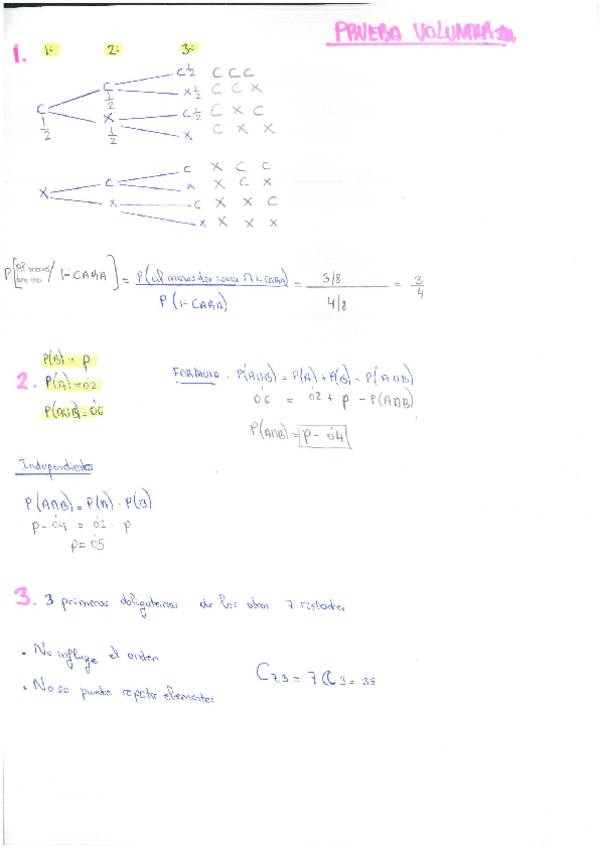 PRUEBA VOLUNTARIA
1. 1- 2- 3-
C 1/2 C C C
C 1/2 X 1/2 C C X
C 1/2 X 1/2 C 1/2 C X C
X C X X
C X C C
X C X X C X
X C X X C
X X X X
P[al menos dos caras / 1- CARA] = P(al menos dos caras ∩ 1-CARA) / P(1- CARA) = 3/8 / 4/8 = 3/4
P(B) = p
2. P(A) = 0'2
P(A∪B) = 0'6
FORMULA. P(A∪B) = P(A) + P(B) - P(A∩B)
0'6 = 0'2 + p - P(A∩B)
P(A∩B) = p - 0'4
Independientes
P(A∩B) = P(A) · P(B)
p - 0'4 = 0'2 · p
p = 0'5
3. 3 primeras obligatorias de las otras 7 restantes
· No influye el orden
· No se puede repetir elementos
C 7,3 = 7 C 3 = 35